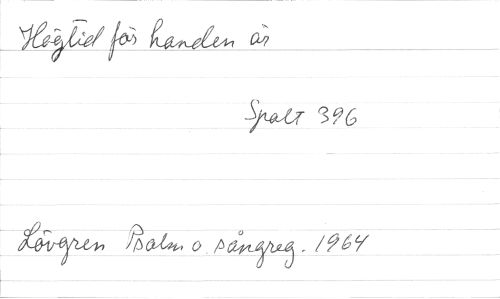 Högtid för handen är
Spalt 396
Lövgren Psalm o. sångreg. 1964